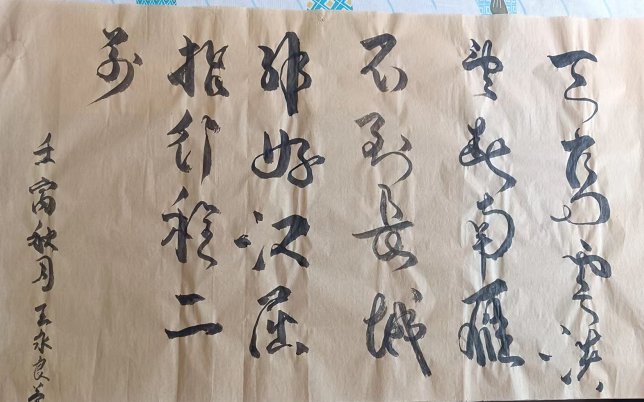 天高云淡
望断南雁
不到长城
非好汉屈
指行程二
万
壬寅秋月 王永良书